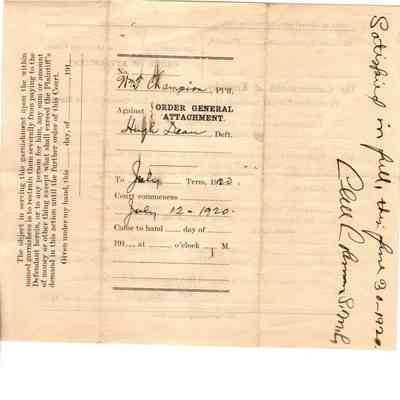 The object in serving this garnishment upon the within
named garnishees is to restrain them severally from paying to the
Defendant herein, or to any person for him, any sum or amount
of money or other thing except what shall exceed the Plaintiff's
demand in this action until the further order of this Court.
Given under my hand, this day, of , 191
No.
Champion, Pltff.
Against
ORDER GENERAL
ATTACHMENT.
Hugh Dean, Deft.
To July Term, 1920.
Court commences
July 12-1920.
Came to hand day of
191 at o'clock M.
Satisfied in full, this June 30-1920.